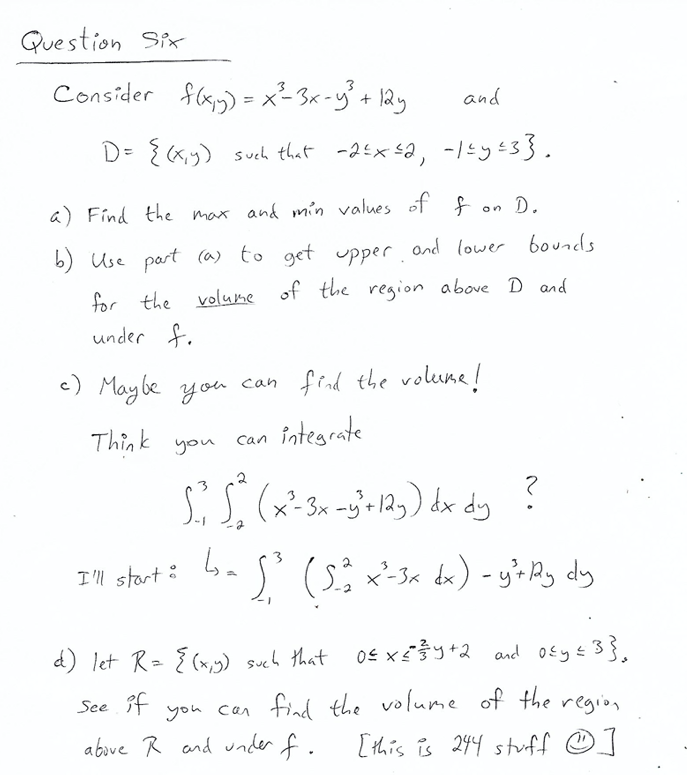 Question Six
Consider f(x,y) = x³-3x-y³+12y and
D= {(x,y) such that -2≤x≤2, -1≤y≤3}.
a) Find the max and min values of f on D.
b) Use part (a) to get upper and lower bounds
for the volume of the region above D and
under f.
c) Maybe you can find the volume!
Think you can integrate
∫₋₁³ ∫₋₂² (x³-3x-y³+12y) dx dy ?
I'll start: ↳ = ∫₋₁³ (∫₋₂² x³-3x dx) - y³+12y dy
d) let R= {(x,y) such that 0≤x≤-⅔y+2 and 0≤y≤3}.
See if you can find the volume of the region
above R and under f. [this is 244 stuff ☺]